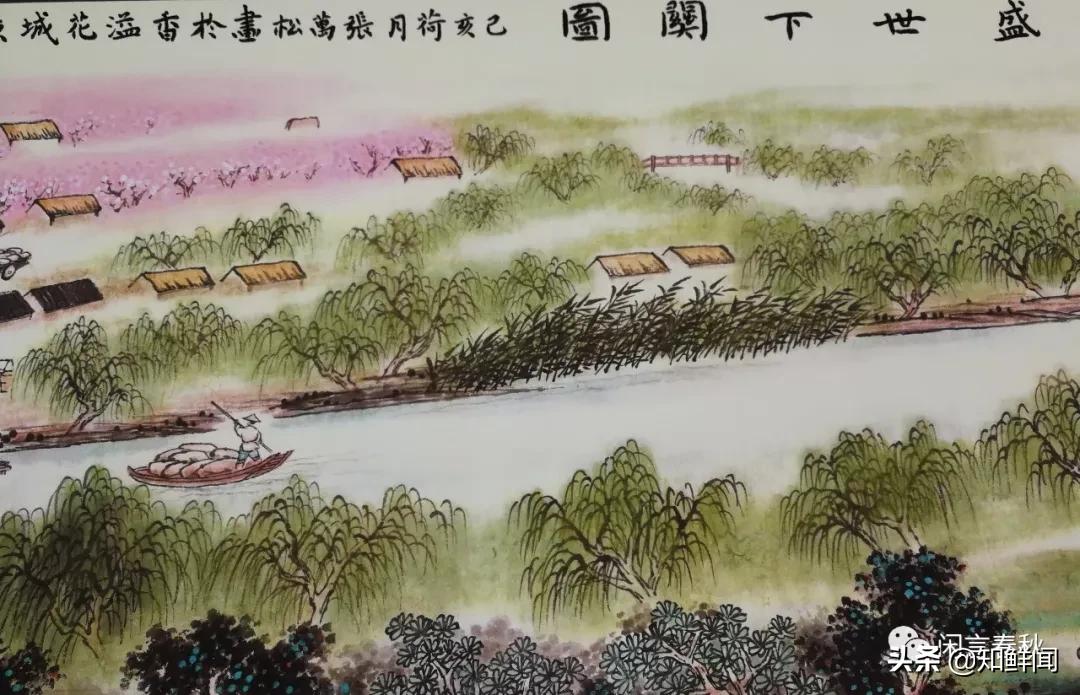 盛世下關圖 己亥荷月張萬松畫於香溢花城
闲言春秋
头条 @知鲜闻